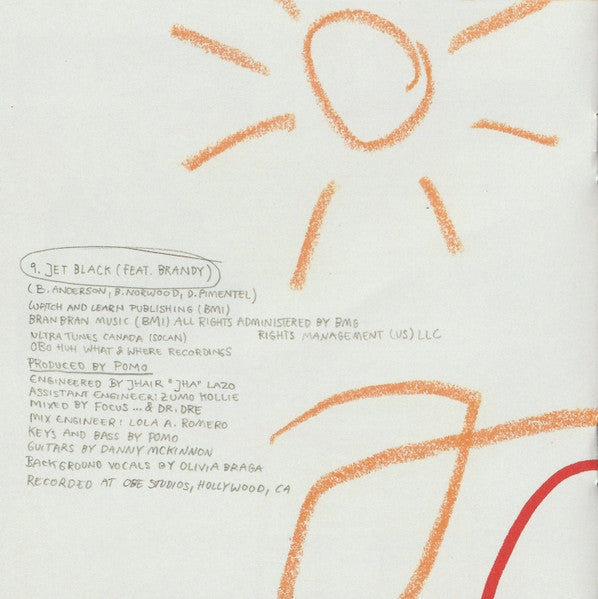 9. JET BLACK (FEAT. BRANDY)
(B. ANDERSON, B. NORWOOD, D. PIMENTEL)
WATCH AND LEARN PUBLISHING (BMI)
BRAN BRAN MUSIC (BMI) ALL RIGHTS ADMINISTERED BY BMG
RIGHTS MANAGEMENT (US) LLC
ULTRA TUNES CANADA (SOCAN)
OBO HUH WHAT & WHERE RECORDINGS
PRODUCED BY POMO
ENGINEERED BY JHAIR "JHA" LAZO
ASSISTANT ENGINEER: ZUMO KOLLIE
MIXED BY FOCUS... & DR. DRE
MIX ENGINEER: LOLA A. ROMERO
KEYS AND BASS BY POMO
GUITARS BY DANNY MCKINNON
BACKGROUND VOCALS BY OLIVIA BRAGA
RECORDED AT OBE STUDIOS, HOLLYWOOD, CA